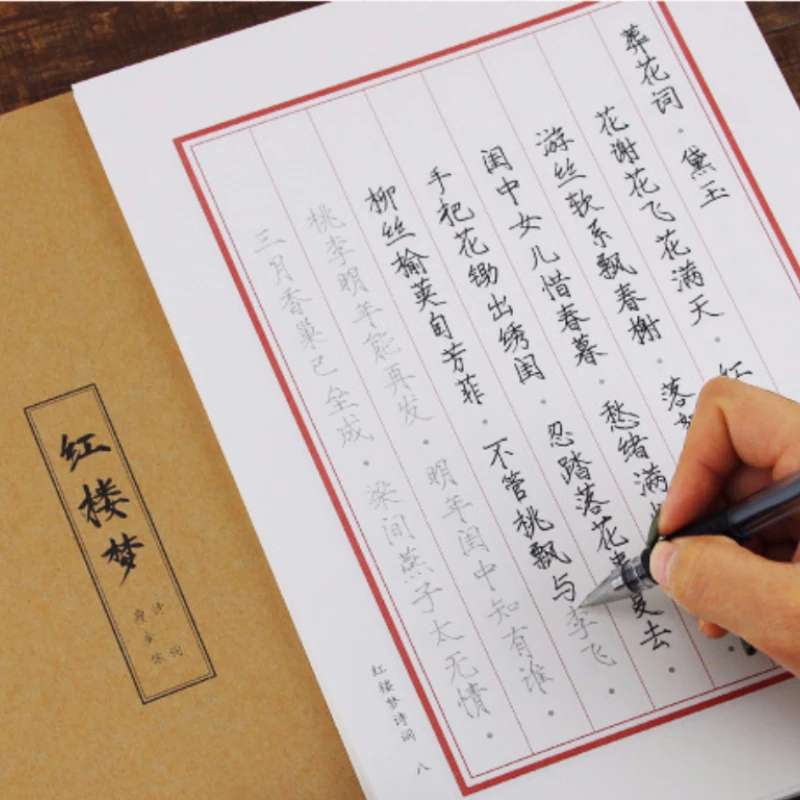 葬花词·黛玉
花谢花飞花满天·红
游丝软系飘春榭·落
闺中女儿惜春暮·愁绪满
手把花锄出绣闺·忍踏落花来复去·
柳丝榆荚自芳菲·不管桃飘与李飞·
桃李明年能再发·明年闺中知有谁·
三月香巢已全成·梁间燕子太无情·
红楼梦诗词 八
红楼梦
诗词
瘦金体